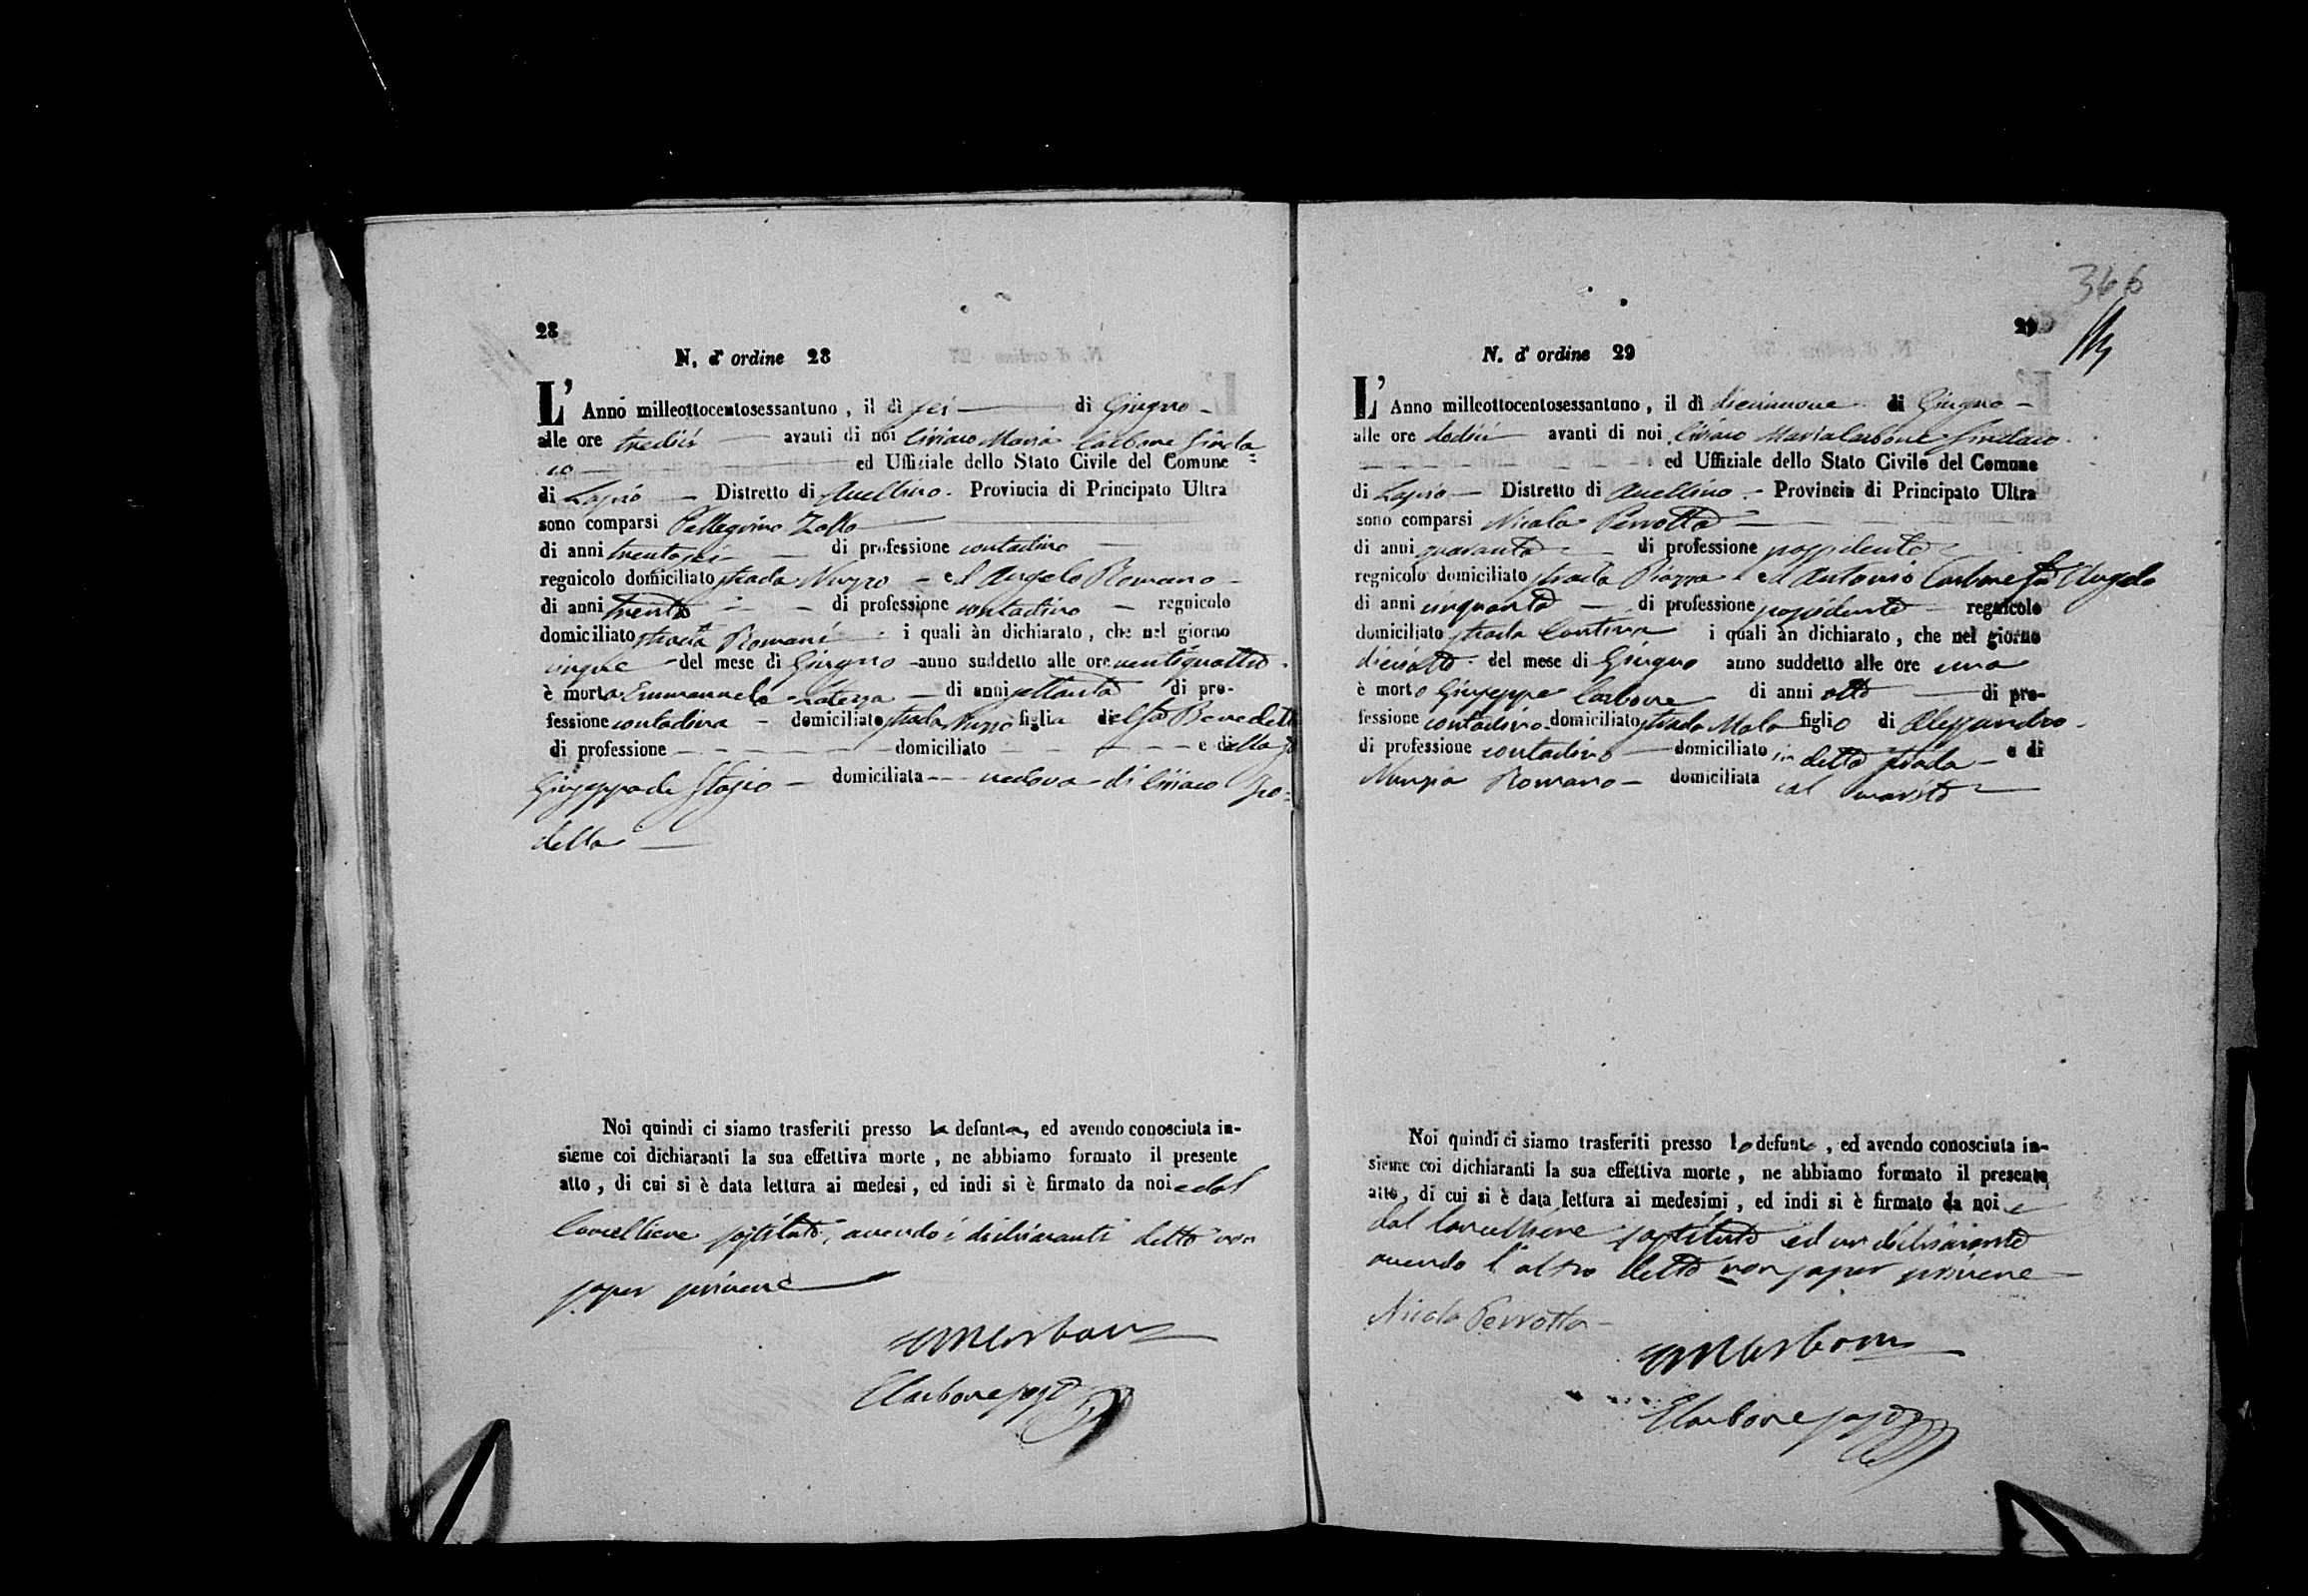 28
N. d' ordine 28
L' Anno milleottocentosessantuno, il dì sei di Giugno
alle ore tredici avanti di noi Ciriaco Maria Carbone Sinda=
co ed Uffiziale dello Stato Civile del Comune
di Lapio Distretto di Avellino. Provincia di Principato Ultra
sono comparsi Pellegrino Zollo
di anni trentasei di professione contadino
regnicolo domiciliato strada Nuzzo ed Angelo Romano
di anni trenta di professione contadino regnicolo
domiciliato strada Romani i quali àn dichiarato, che nel giorno
cinque del mese di Giugno anno suddetto alle ore ventiquattro
è morta Emmanuela Laterza di anni settanta di pro-
fessione contadina domiciliato strada Nuzzo figlia del fu Benedetto
di professione domiciliato e della fu
Giuseppa de Stasio domiciliata vedova di Ciriaco
della
Noi quindi ci siamo trasferiti presso la defunta, ed avendo conosciuta in-
sieme coi dichiaranti la sua effettiva morte, ne abbiamo formato il presente
atto, di cui si è data lettura ai medesi, ed indi si è firmato da noi e dal
Cancelliere sostituto, avendo i dichiaranti detto non
saper scrivere
CMCarbone
Carbone sost
366
29
N. d' ordine 29
L' Anno milleottocentosessantuno, il dì diecinnove di Giugno
alle ore dodici avanti di noi Ciriaco Maria Carbone Sindaco
ed Uffiziale dello Stato Civile del Comune
di Lapio Distretto di Avellino Provincia di Principato Ultra
sono comparsi Nicola Perrotta
di anni quaranta di professione possidente
regnicolo domiciliato strada Piazza ed Antonio Carbone fu Angelo
di anni cinquanta di professione possidente regnicolo
domiciliato strada i quali àn dichiarato, che nel giorno
dieciotto del mese di Giugno anno suddetto alle ore una
è morto Giuseppe Carbone di anni otto di pro-
fessione contadino domiciliato strada Mala figlio di Alessandro
di professione contadino domiciliato in detta strada e di
Nunzia Romano domiciliata col marito
Noi quindi ci siamo trasferiti presso lo defunto, ed avendo conosciuta in-
sieme coi dichiaranti la sua effettiva morte, ne abbiamo formato il presente
atto, di cui si è data lettura ai medesimi, ed indi si è firmato da noi e
dal Cancelliere sostituto ed un dichiarante
avendo l'altro detto non saper scrivere
Nicola Perrotta
CMCarbone
Carbone sost